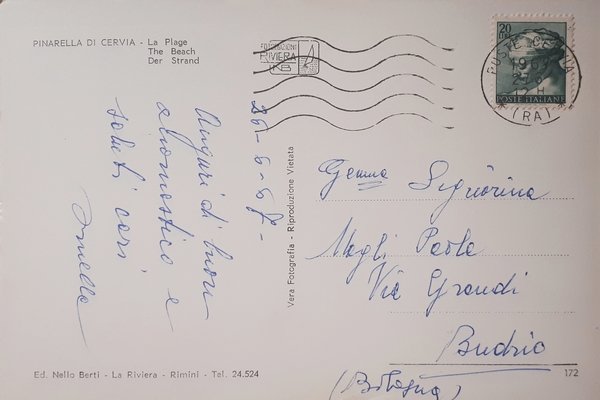 PINARELLA DI CERVIA - La Plage
The Beach
Der Strand
26-6-67-
Auguri di buon
onomastico e
saluti cari
Ornella
Vera Fotografia - Riproduzione Vietata
RIVIERA
20
POSTE ITALIANE
(RA)
Gemma Signorina
Magli Paola
Via Grandi
Budrio
(Bologna)
Ed. Nello Berti - La Riviera - Rimini - Tel. 24.524
172